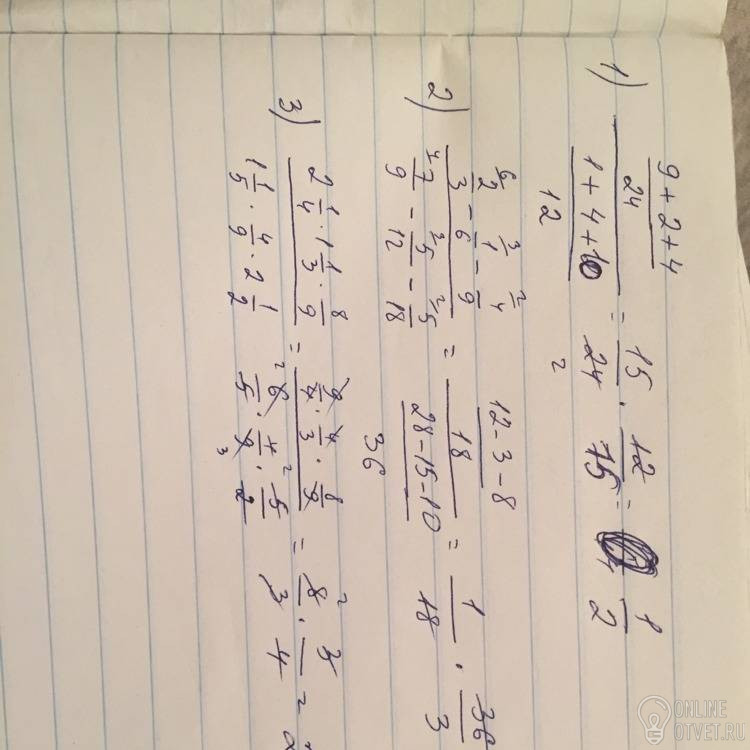 1) 9+2+4
24
1+4+10
12
= 15/24 · 12/15 = 1/2
2) 2/3 - 1/6 - 4/9
7/9 - 5/12 - 5/18
= 12-3-8
18
28-15-10
36
= 1/18 · 36/3
3) 2 1/4 · 1 1/3 · 8/9
1 1/5 · 4/9 · 2 1/2
= 9/4 · 4/3 · 8/9
6/5 · 4/9 · 5/2
= 8/3 · 3/4 =
ONLINE
OTVET.RU